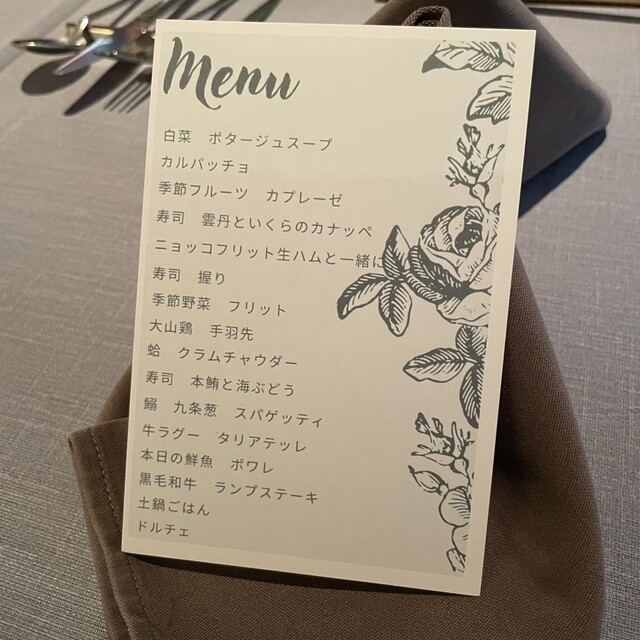 Menu
白菜　ポタージュスープ
カルパッチョ
季節フルーツ　カプレーゼ
寿司　雲丹といくらのカナッペ
ニョッコフリット生ハムと一緒に
寿司　握り
季節野菜　フリット
大山鶏　手羽先
蛤　クラムチャウダー
寿司　本鮪と海ぶどう
鰯　九条葱　スパゲッティ
牛ラグー　タリアテッレ
本日の鮮魚　ポワレ
黒毛和牛　ランプステーキ
土鍋ごはん
ドルチェ